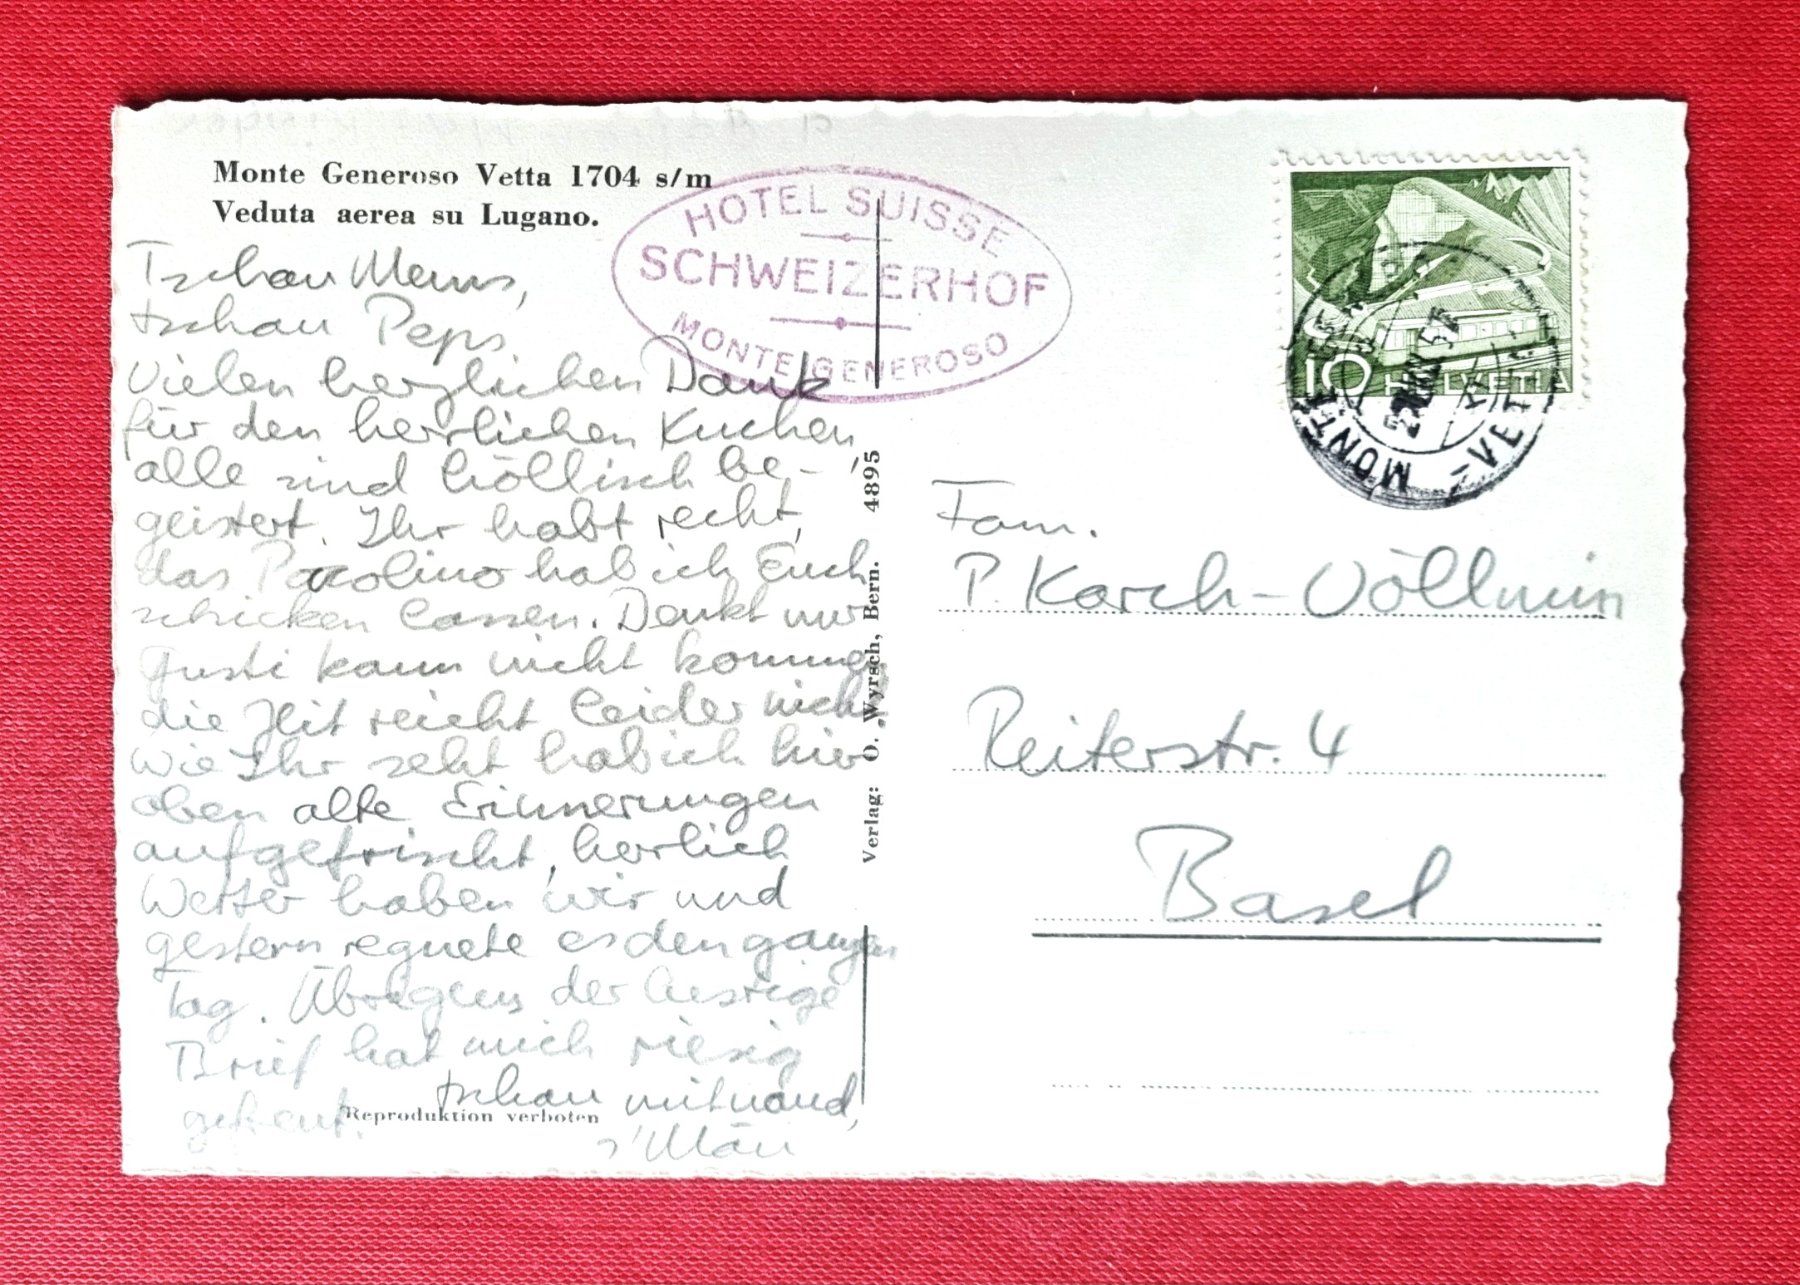 Monte Generoso Vetta 1704 s/m
Veduta aerea su Lugano.
HOTEL SUISSE
SCHWEIZERHOF
MONTE GENEROSO
Tschau Mems,
tschau Peps
Vielen herzlichen Dank
für den herrlichen Kuchen,
alle sind höllisch be-
geistert. Ihr habt recht,
das Piccolino hab ich Euch
schicken lassen. Denkt nur
Gusti kann nicht kommen,
die Zeit reicht leider nicht.
Wie Ihr seht hab ich hier
oben alte Erinnerungen
aufgefrischt, herrlich
Wetter haben wir und
gestern regnete es den ganzen
Tag. Übrigens der
Brief hat mich riesig
gefreut.
tschau mitnand,
s'Mäu
Reproduktion verboten
Verlag: O. Wyrsch, Bern. 4895
10 HELVETIA
MONTE GENEROSO
VETTA
Fam.
P. Karch-Völlmin
Reiterstr. 4
Basel